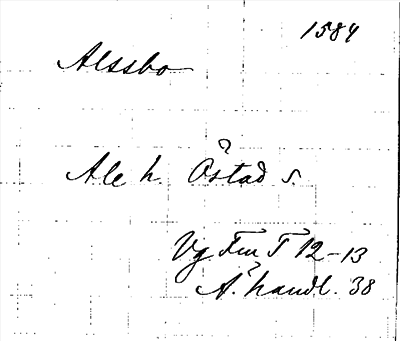 1584
Alssbo
Ale h. Östad s.
Vg Fm T 12-13
Ä. handl. 38